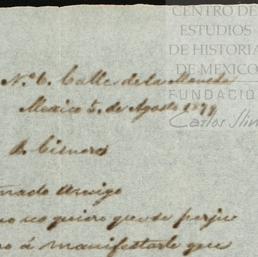 CENTRO DE
ESTUDIOS
DE HISTORIA
DE MEXICO
FUNDACIO
Carlos Slim
No 6. Calle de la Moneda
Mexico 5, de Agosto 1879
Cisneros
mado Amigo
no quiero que se perju
ro á manifestarle que